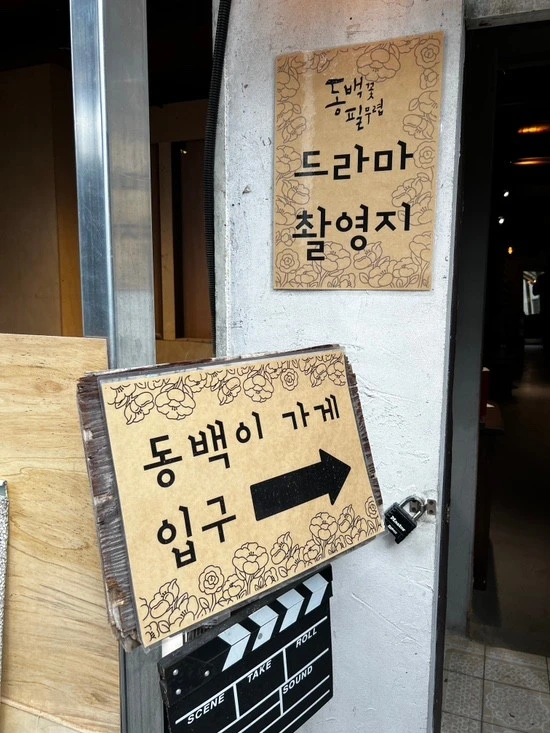 동백꽃
필무렵
드라마
촬영지
동백이 가게
입구
Master
ROLL
TAKE
SCENE
SOUND